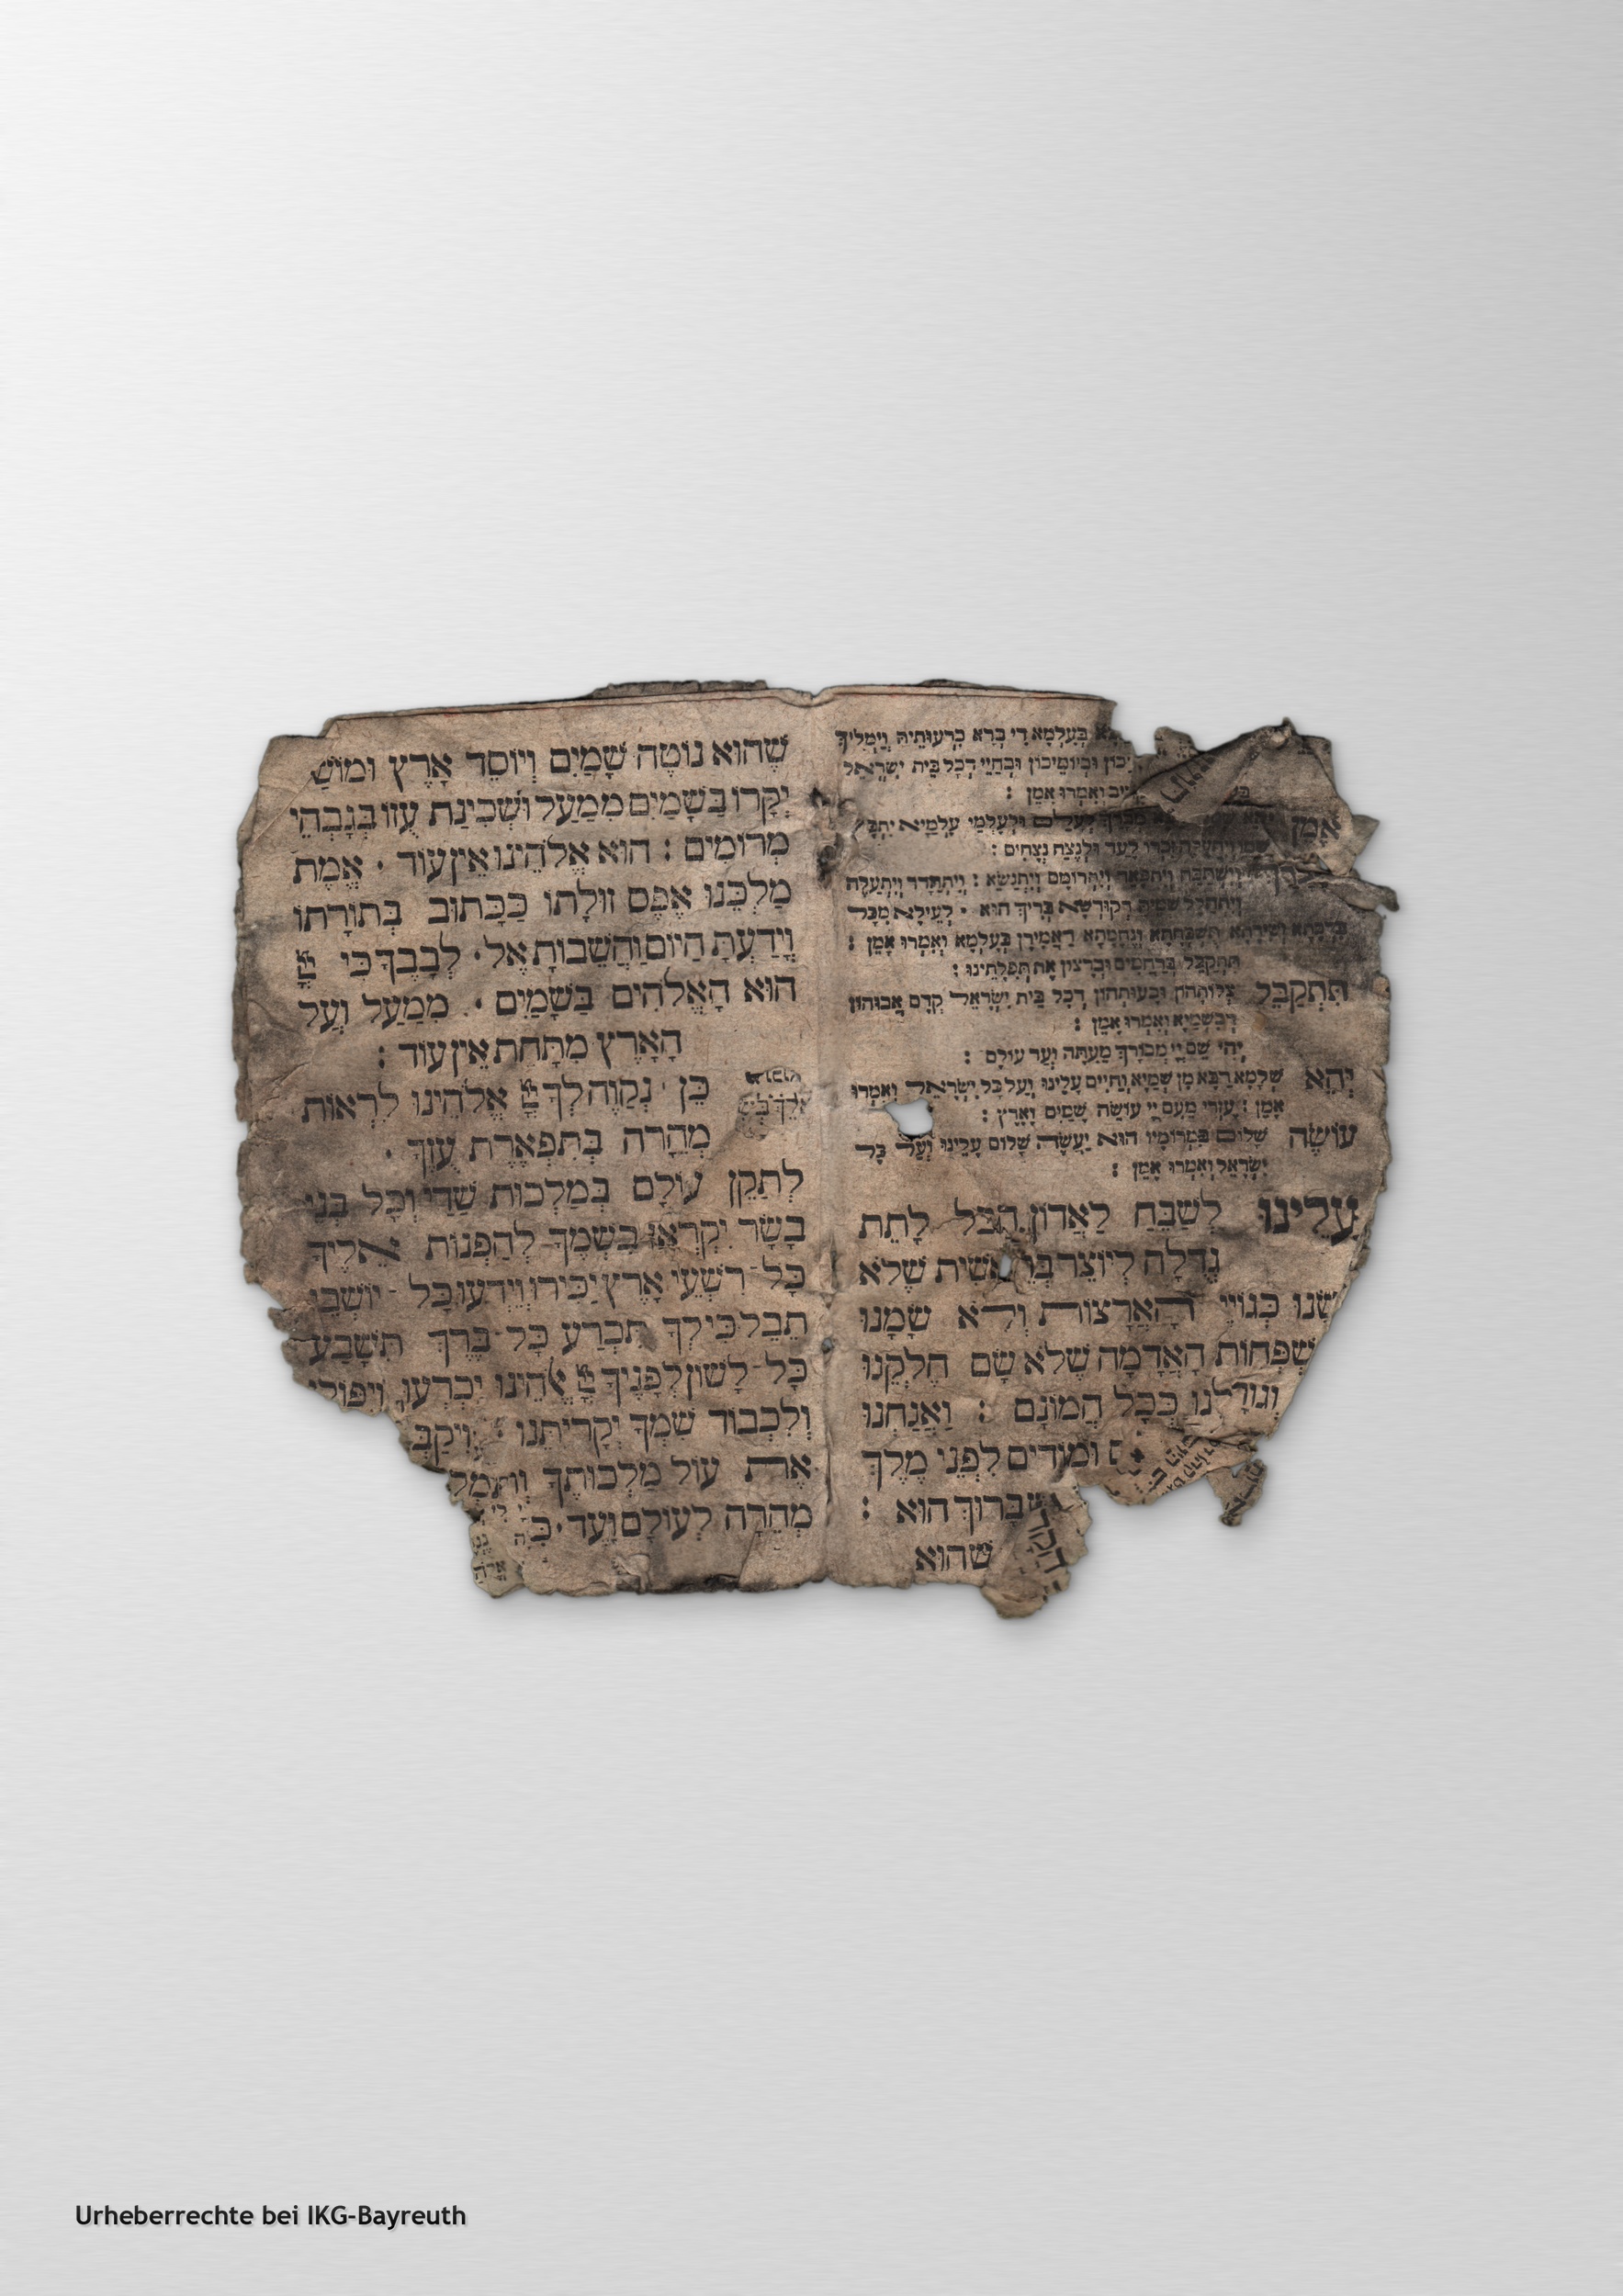 בְּעָלְמָא דִי בְרָא כִרְעוּתֵיהּ וְיַמְלִיךְ
וּבְיוֹמֵיכוֹן וּבְחַיֵּי דְכָל בֵּית יִשְׂרָאֵל
וְאִמְרוּ אָמֵן :
אָמֵן לְעָלַם וּלְעָלְמֵי עָלְמַיָּא יִתְבָּ
לָעַד וּלְנֵצַח נְצָחִים :
וְיִשְׁתַּבַּח וְיִתְפָּאַר וְיִתְרוֹמַם וְיִתְנַשֵּׂא : וְיִתְהַדַּר וְיִתְעַלֶּה
וְיִתְהַלָּל שְׁמֵיהּ דְּקוּדְשָׁא בְּרִיךְ הוּא · לְעֵילָּא מִכָּל
בִּרְכָתָא וְשִׁירָתָא תֻּשְׁבְּחָתָא וְנֶחֱמָתָא דַּאֲמִירָן בְּעָלְמָא וְאִמְרוּ אָמֵן :
תִּתְקַבֵּל בְּרַחֲמִים וּבְרָצוֹן אֶת תְּפִלָּתֵינוּ :
תִּתְקַבֵּל צְלוֹתְהוֹן וּבָעוּתְהוֹן דְכָל בֵּית יִשְׂרָאֵל קֳדָם אֲבוּהוֹן
דְּבִשְׁמַיָּא וְאִמְרוּ אָמֵן :
יְהִי שֵׁם יְיָ מְבוֹרָךְ מֵעַתָּה וְעַד עוֹלָם :
יְהֵא שְׁלָמָא רַבָּא מִן שְׁמַיָּא וְחַיִּים עָלֵינוּ וְעַל כָּל יִשְׂרָאֵל וְאִמְרוּ
אָמֵן : עֶזְרִי מֵעִם יְיָ עוֹשֵׂה שָׁמַיִם וָאָרֶץ :
עוֹשֶׂה שָׁלוֹם בִּמְרוֹמָיו הוּא יַעֲשֶׂה שָׁלוֹם עָלֵינוּ וְעַל כָּל
יִשְׂרָאֵל וְאִמְרוּ אָמֵן :
עָלֵינוּ לְשַׁבֵּחַ לַאֲדוֹן הַכֹּל לָתֵת
גְּדֻלָּה לְיוֹצֵר בְּרֵאשִׁית שֶׁלֹּא
שָׂנוּ כְּגוֹיֵי הָאֲרָצוֹת וְלֹא שָׂמָנוּ
שְׁפְּחוֹת הָאֲדָמָה שֶׁלֹּא שָׂם חֶלְקֵנוּ
וְגוֹרָלֵנוּ כְּכָל הֲמוֹנָם : וַאֲנַחְנוּ
ים וּמוֹדִים לִפְנֵי מֶלֶךְ
בָּרוּךְ הוּא :
שֶׁהוּא
שֶׁהוּא נוֹטֶה שָׁמַיִם וְיוֹסֵד אָרֶץ וּמוֹשַׁ
יְקָרוֹ בַּשָּׁמַיִם מִמַּעַל וּשְׁכִינַת עֻזּוֹ בְּגָבְהֵי
מְרוֹמִים : הוּא אֱלֹהֵינוּ אֵין עוֹד · אֱמֶת
מַלְכֵּנוּ אֶפֶס זוּלָתוֹ כַּכָּתוּב בְּתוֹרָתוֹ
וְיָדַעְתָּ הַיּוֹם וַהֲשֵׁבוֹתָ אֶל· לְבָבֶךָ כִּי יְיָ
הוּא הָאֱלֹהִים בַּשָּׁמַיִם · מִמַּעַל וְעַל
הָאָרֶץ מִתָּחַת אֵין עוֹד :
כֵּן · נְקַוֶּה לְךָ יְיָ אֱלֹהֵינוּ לִרְאוֹת
מְהֵרָה בְּתִפְאֶרֶת עֻזֶּךָ ·
לְתַקֵּן עוֹלָם בְּמַלְכוּת שַׁדַּי וְכָל בְּנֵי
בָשָׂר יִקְרְאוּ בִשְׁמֶךָ לְהַפְנוֹת אֵלֶיךָ
כָּל־רִשְׁעֵי אָרֶץ יַכִּירוּ וְיֵדְעוּ כָּל־יוֹשְׁבֵי
תֵבֵל כִּי לְךָ תִּכְרַע כָּל־בֶּרֶךְ תִּשָּׁבַע
כָּל־לָשׁוֹן לְפָנֶיךָ יְיָ אֱלֹהֵינוּ יִכְרְעוּ וְיִפּוֹלוּ
וְלִכְבוֹד שִׁמְךָ יְקָר יִתֵּנוּ : וִיקַבְּ
אֶת עוֹל מַלְכוּתֶךָ וְתִמְל
מְהֵרָה לְעוֹלָם וָעֶד · כִּ
Urheberrechte bei IKG-Bayreuth